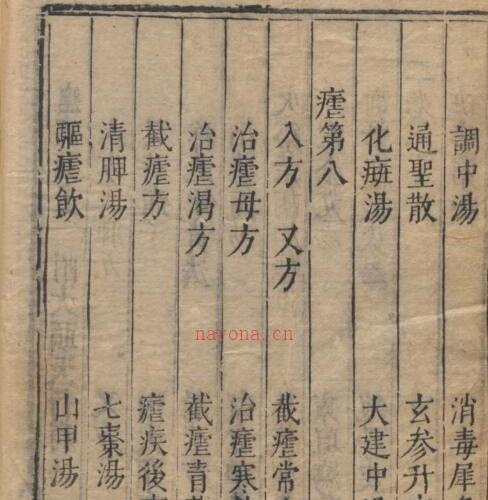 調中湯　消毒犀
通聖散　玄参升
化癍湯　大建中
瘧第八
入方　又方　截瘧常
治瘧母方　治瘧寒
治瘧渴方　截瘧青
截瘧方　瘧疾後
清脾湯　七棗湯
驅瘧飲　山甲湯
nayona.cn